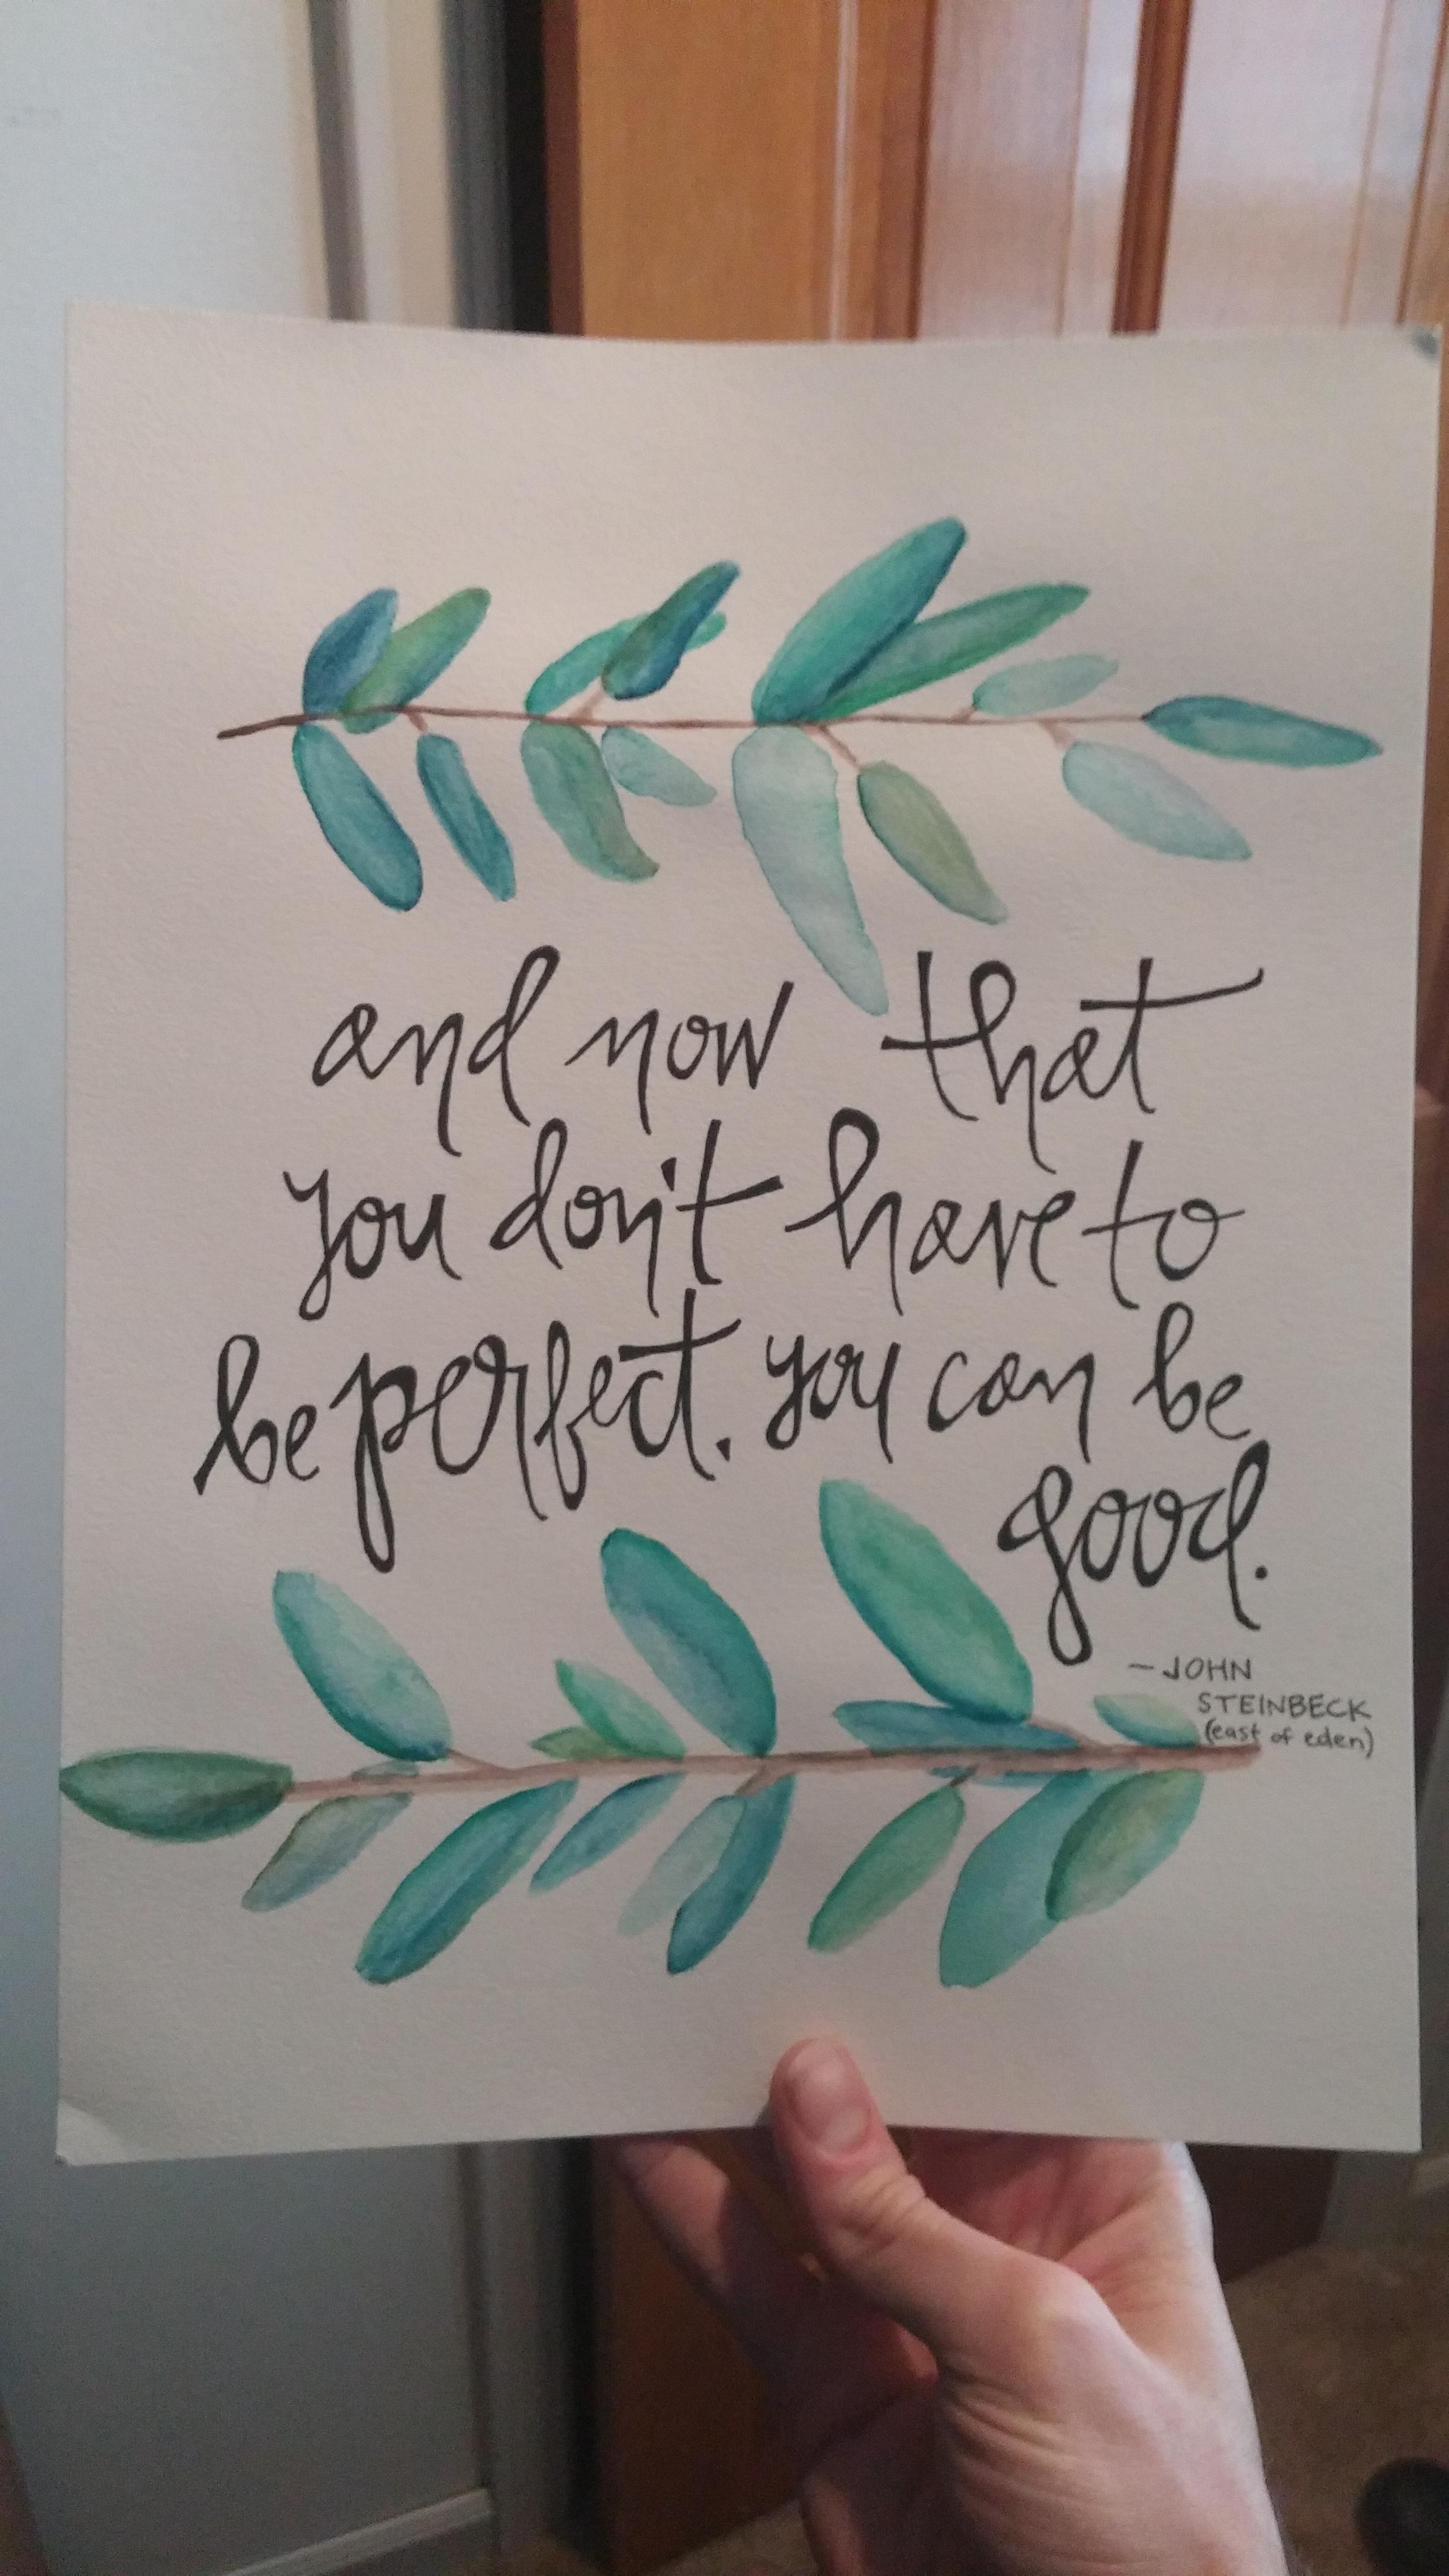 and now that
you don't have to
be perfect. you can be
good.
— JOHN
STEINBECK
(east of eden)